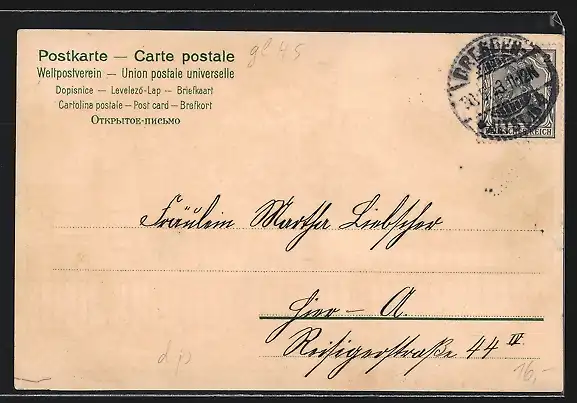 Postkarte — Carte postale
Weltpostverein — Union postale universelle
Dopisnice — Levelező-Lap — Briefkaart
Cartolina postale — Post card — Brefkort
Открытое-письмо
gl 45
DRESDEN
REICH
Fräulein Martha Liebscher
hier – A.
Reisigerstraße 44 IV.
d p
16,-